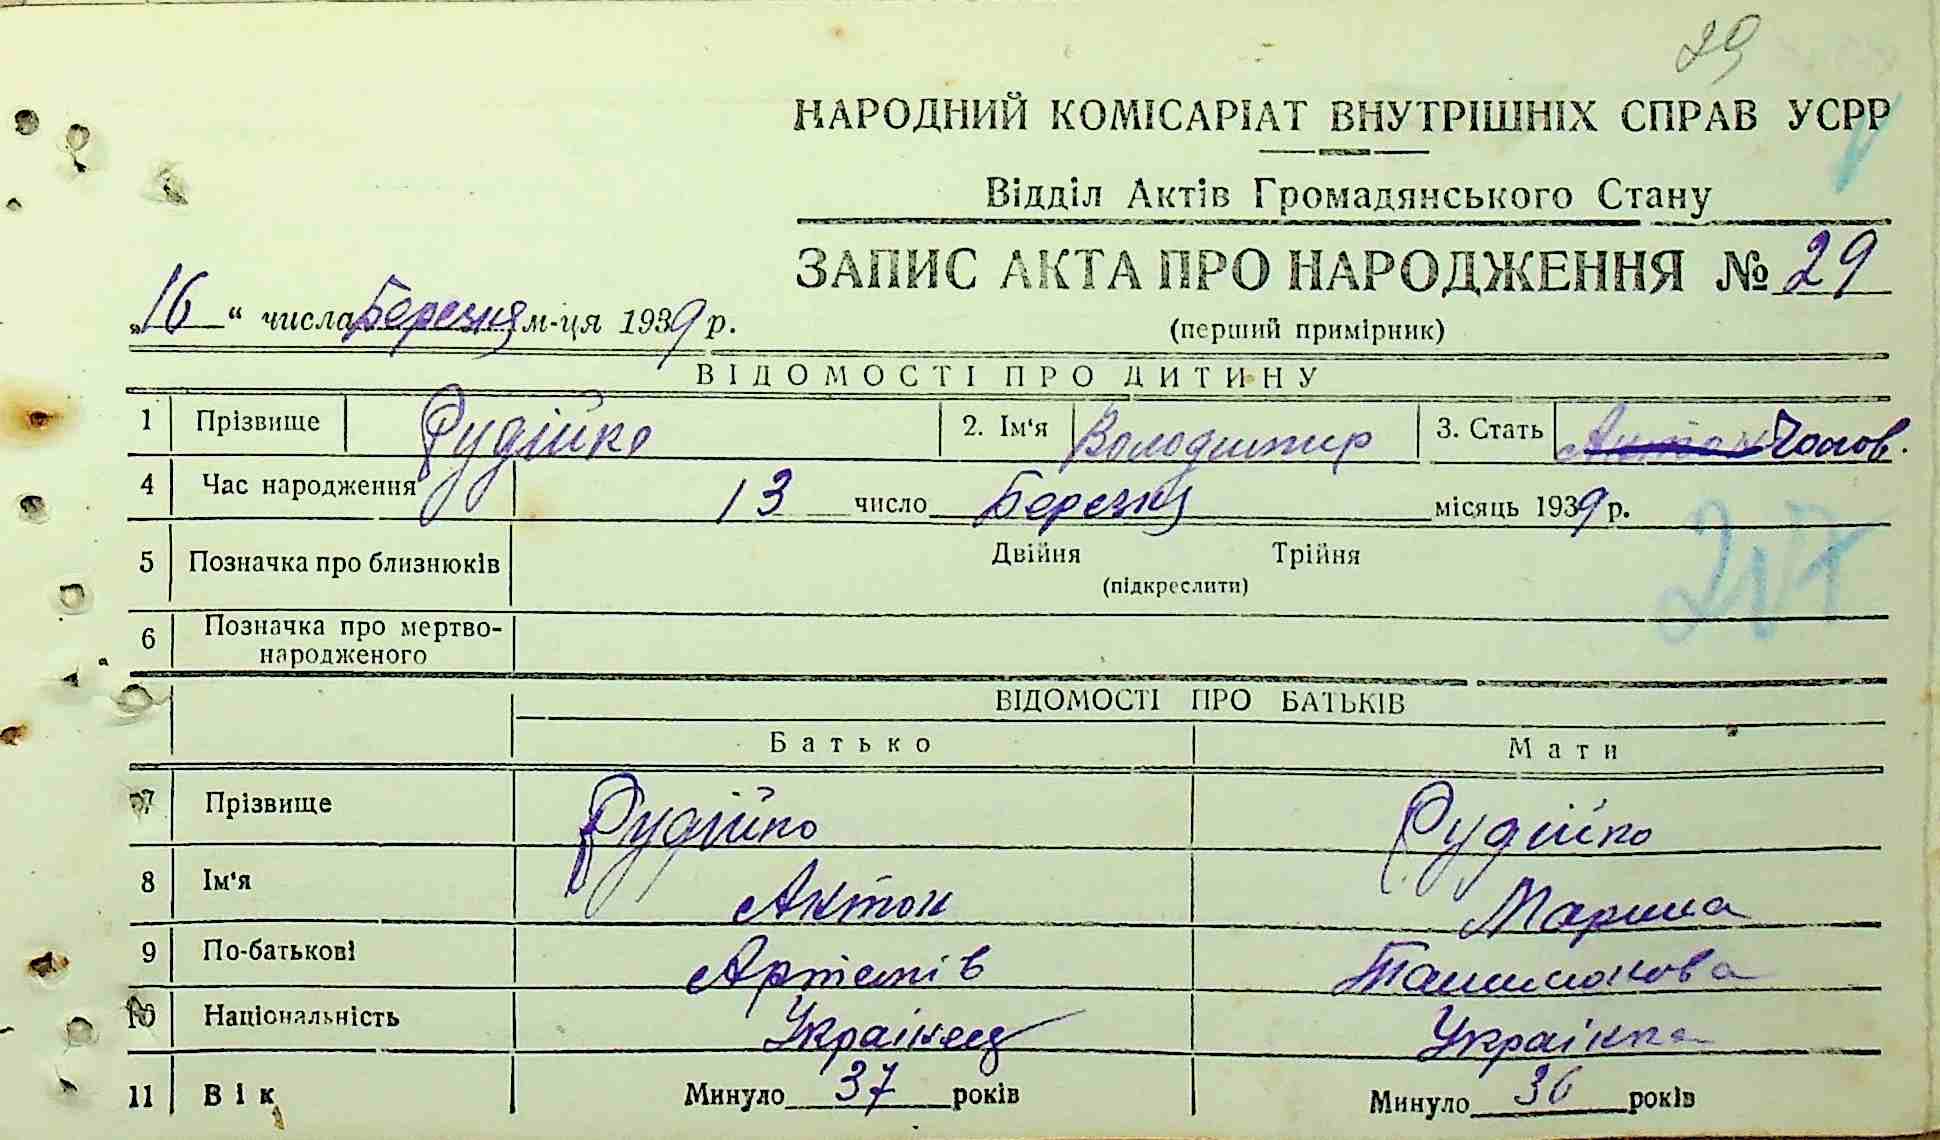 29
НАРОДНИЙ КОМІСАРІАТ ВНУТРІШНІХ СПРАВ УСРР
Відділ Актів Громадянського Стану
ЗАПИС АКТА ПРО НАРОДЖЕННЯ № 29
„16“ числа Березня м-ця 1939 р.
(перший примірник)
ВІДОМОСТІ ПРО ДИТИНУ
1 Прізвище Рудійко 2. Ім'я Володимир 3. Стать Антон Чолов.
4 Час народження 13 число Березня місяць 1939 р.
5 Позначка про близнюків Двійня Трійня
(підкреслити)
6 Позначка про мертво-
народженого
ВІДОМОСТІ ПРО БАТЬКІВ
Батько Мати
7 Прізвище Рудійко Рудійко
8 Ім'я Антон Марина
9 По-батькові Артемів
10 Національність Українец Українка
11 Вік Минуло 37 років Минуло 36 років